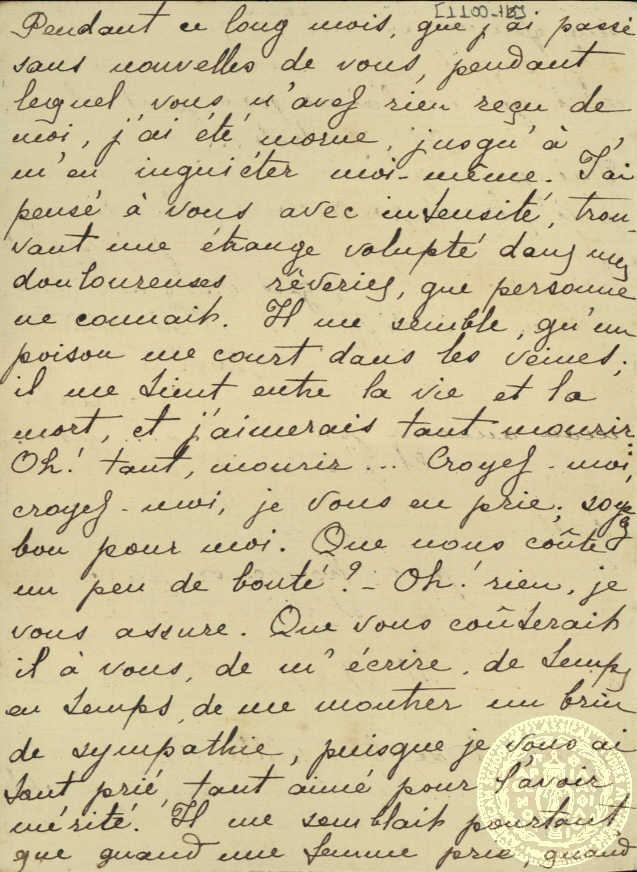 [1100-15]
Pendant ce long mois, que j'ai passé
sans nouvelles de vous, pendant
lequel vous n'avez rien reçu de
moi, j'ai été morne, jusqu'à
m'en inquiéter moi-même. J'ai
pensé à vous avec intensité, trou-
vant une étrange volupté dans mes
douloureuses rêveries, que personne
ne connait. Il me semble, qu'un
poison me court dans les veines;
il me tient entre la vie et la
mort, et j'aimerais tant mourir...
Oh! tant, mourir... Croyez-moi,
croyez-moi, je vous en prie; soyez
bon pour moi. Que nous coûte
un peu de bonté? - Oh! rien, je
vous assure. Que vous coûterait
il à vous, de m'écrire, de temps
en temps, de me montrer un brin
de sympathie, puisque je vous ai
tant prié, tant aimé pour l'avoir
mérité. Il me semblait pourtant
que quand une femme prie, quand